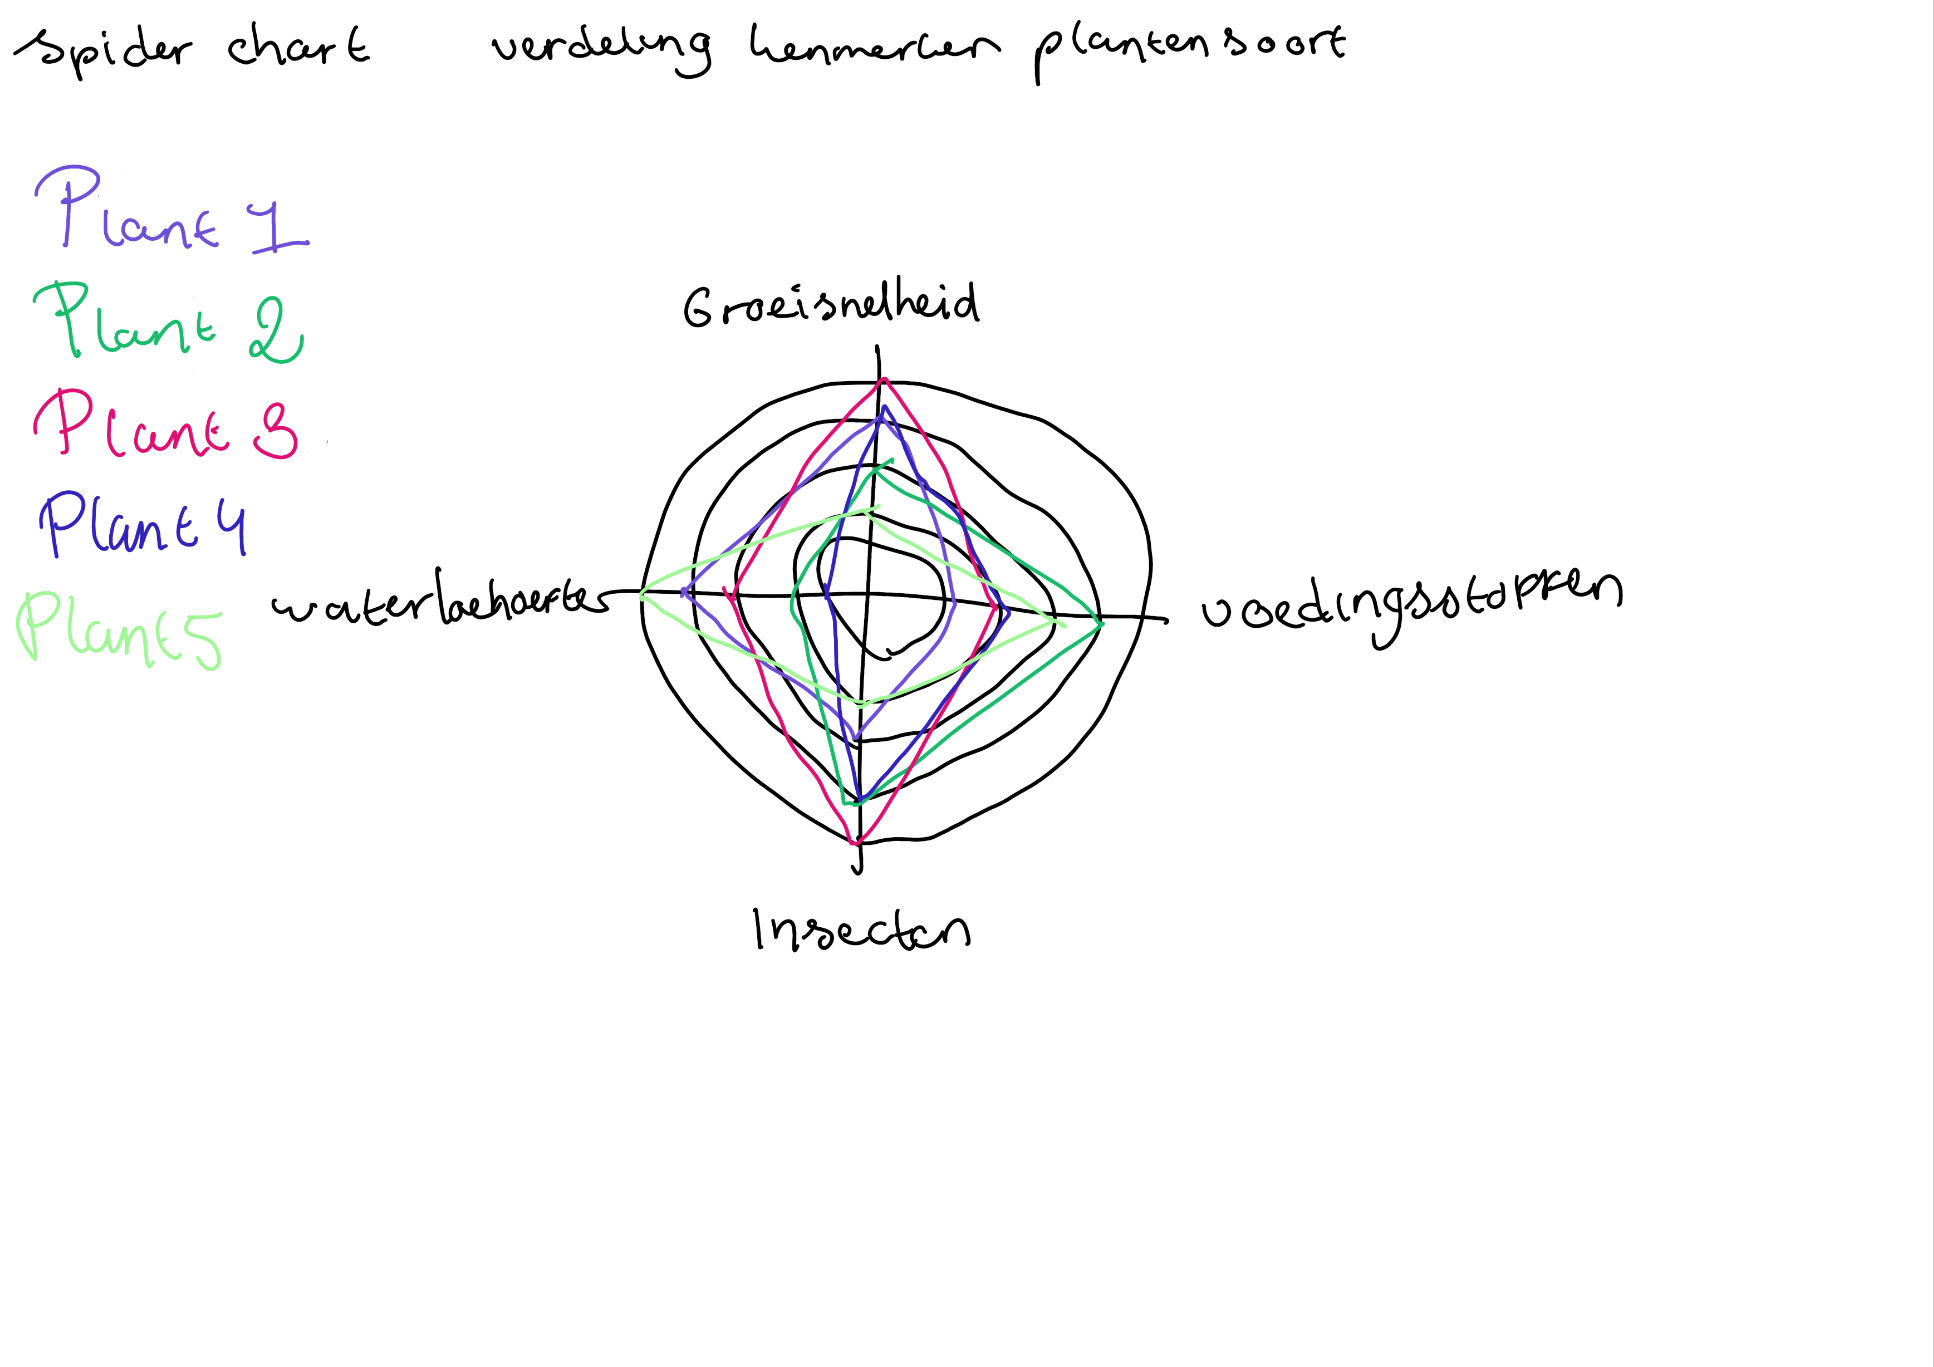 spider chart verdeling kenmerken plantensoort
Plant 1
Plant 2
Plant 3
Plant 4
Plant 5
Groeisnelheid
waterbehoeftes
voedingsstoffen
Insecten